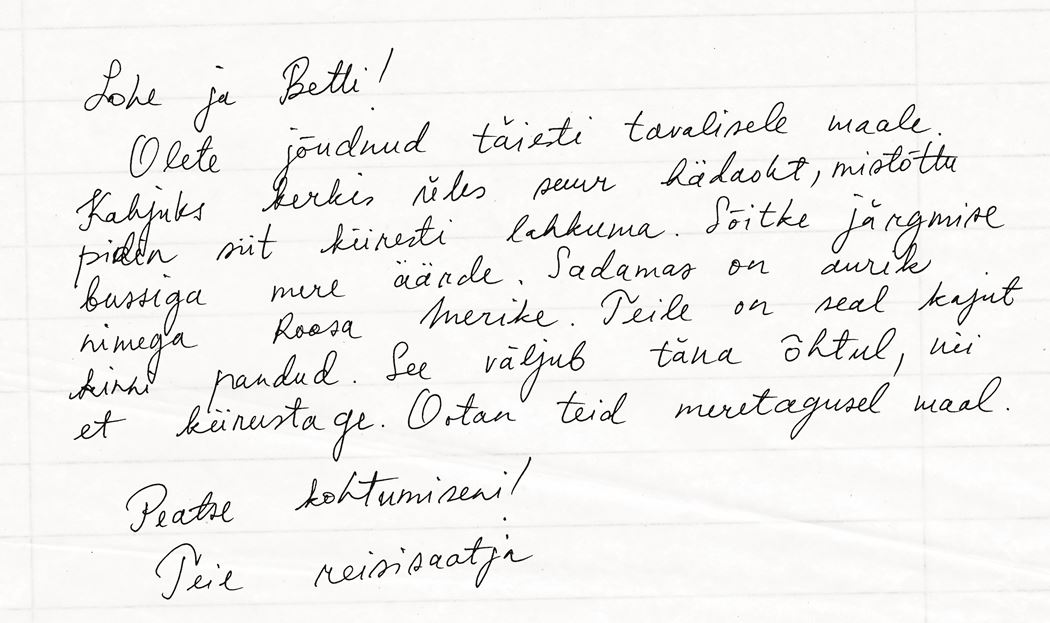 Lohe ja Betti!
Olete jõudnud täiesti tavalisele maale.
Kahjuks kerkis üles suur hädaoht, mistõttu
pidin siit kiiresti lahkuma. Sõitke järgmise
bussiga mere äärde. Sadamas on aurik
nimega Roosa Merike. Teile on seal kajut
kinni pandud. See väljub täna õhtul, nii
et kiirustage. Ootan teid meretagusel maal.
Peatse kohtumiseni!
Teie reisisaatja